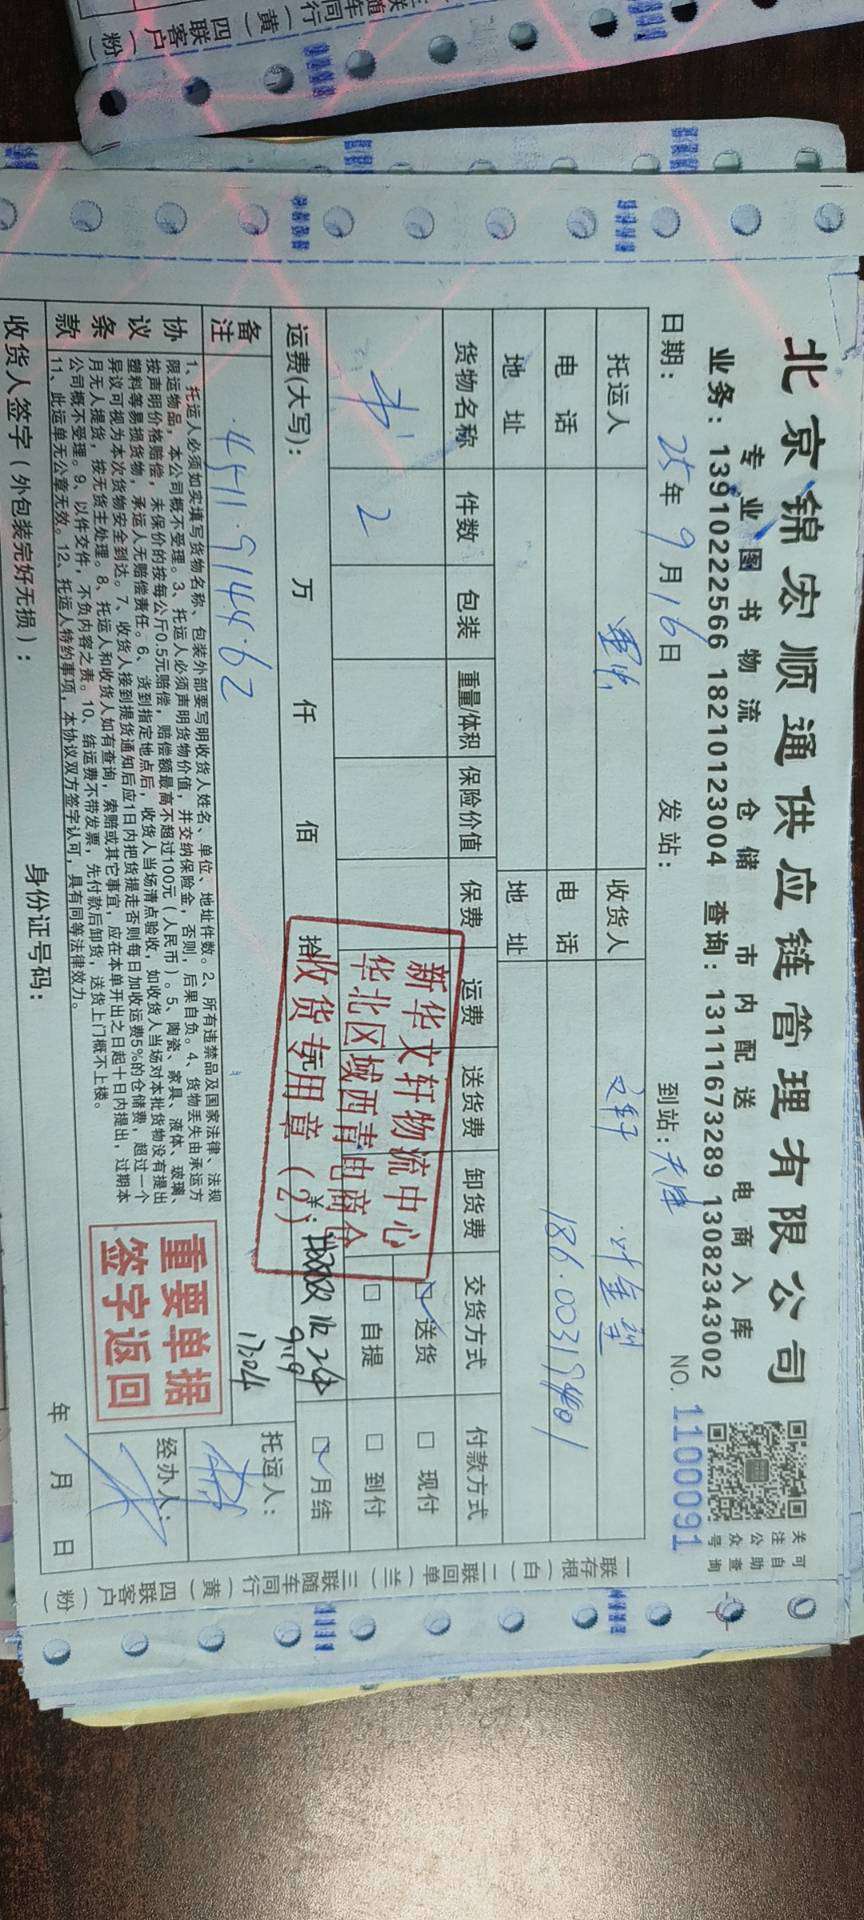 北京锦宏顺通供应链管理有限公司
专业图书物流 仓储 市内配送 电商入库
业务：13910222566 18210123004 查询：13111673289 13082343002
关注公众号
可自助查询
日期：25年9月16日 发站： 到站：天津 NO. 1100091
托运人 收货人 文轩 叶金型
电话 电话 186.0031
地址 地址
货物名称 件数 包装 重量/体积 保险价值 保费 运费 送货费 卸货费 交货方式 付款方式
书 2 送货 现付
自提 到付
运费(大写)： 万 仟 佰 拾 月结
新华文轩物流中心
华北区域西青电商仓
收货专用章（2）
9.19
备注 4511.9144.62
托运人：
协议条款
1、托运人必须如实填写货物名称、包装外部要写明收货人姓名、单位、地址件数。2、所有违禁品及国家法律、法规
限运物品，本公司概不受理。3、托运人必须声明货物价值，并交纳保险金，否则，后果自负。4、货物丢失由承运方
按声明价格赔偿，未保价的按每公斤0.5元赔偿，赔偿额最高不超过100元（人民币）。5、陶瓷、家具、液体、玻璃、
塑料等易损货物，承运人无赔偿责任。6、货到指定地点后，收货人当场清点验收，如收货人当场对本批货物没有提出
异议可视为本次货物安全到达。7、收货人接到提货通知后应1日内把货提走否则每日加收运费5%的仓储费，超过一个
月无人提货，按无货主处理。8、托运人和收货人如有查询，索赔或其它事宜，应在本单开出之日起十日内提出，过期本
公司概不受理。9、以件交件，不负内容之责。10、结运费不带发票，先付款后卸货，送货上门概不上楼。
11、此运单无公章无效。12、托运人特约事项，本协议双方签字认可，具有同等法律效力。
重要单据
签字返回
经办人：
收货人签字（外包装完好无损）： 身份证号码： 年 月 日
一联存根（白） 二联回单（兰） 三联随车同行（黄） 四联客户（粉）
三联随车同行（黄） 四联客户（粉）